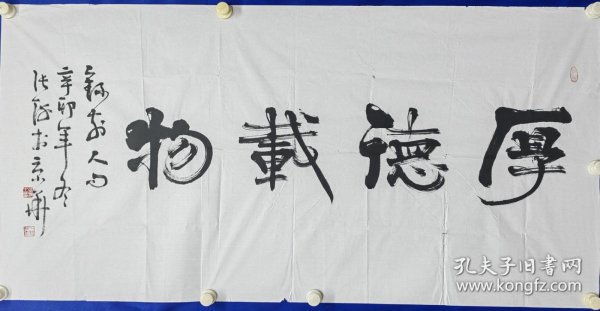 厚德載物
錄古人句
辛卯年冬
於京華
孔夫子旧书网
www.kongfz.com